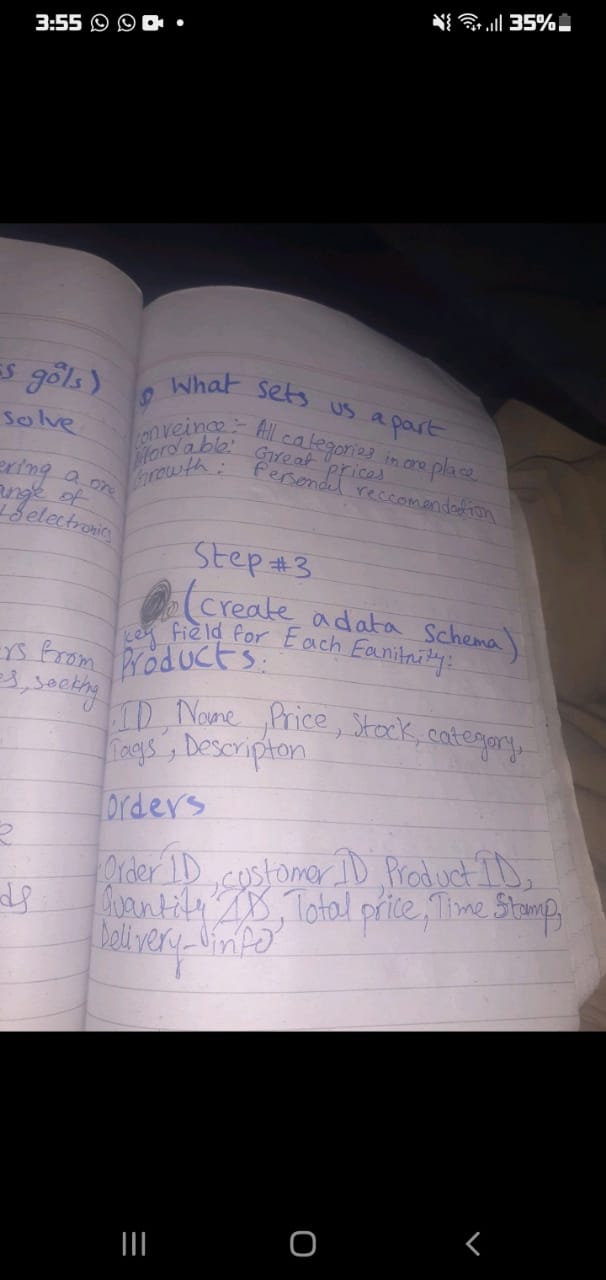 3:55
35%
s gols)
a
solve
ering a one
ange of
electronics
rs from
es, seekhg
ds
What sets us apart
conveince :- All categories in one place
Affordable: Great prices
Growth : Personal reccomendation
Step #3
(create a data Schema)
key field for Each Eanitnity:
Products:
ID, Name, Price, Stock, category,
Tags, Descripton
Orders
Order ID, customer ID, Product ID,
Quantity, Total price, Time Stamp,
Delivery-info